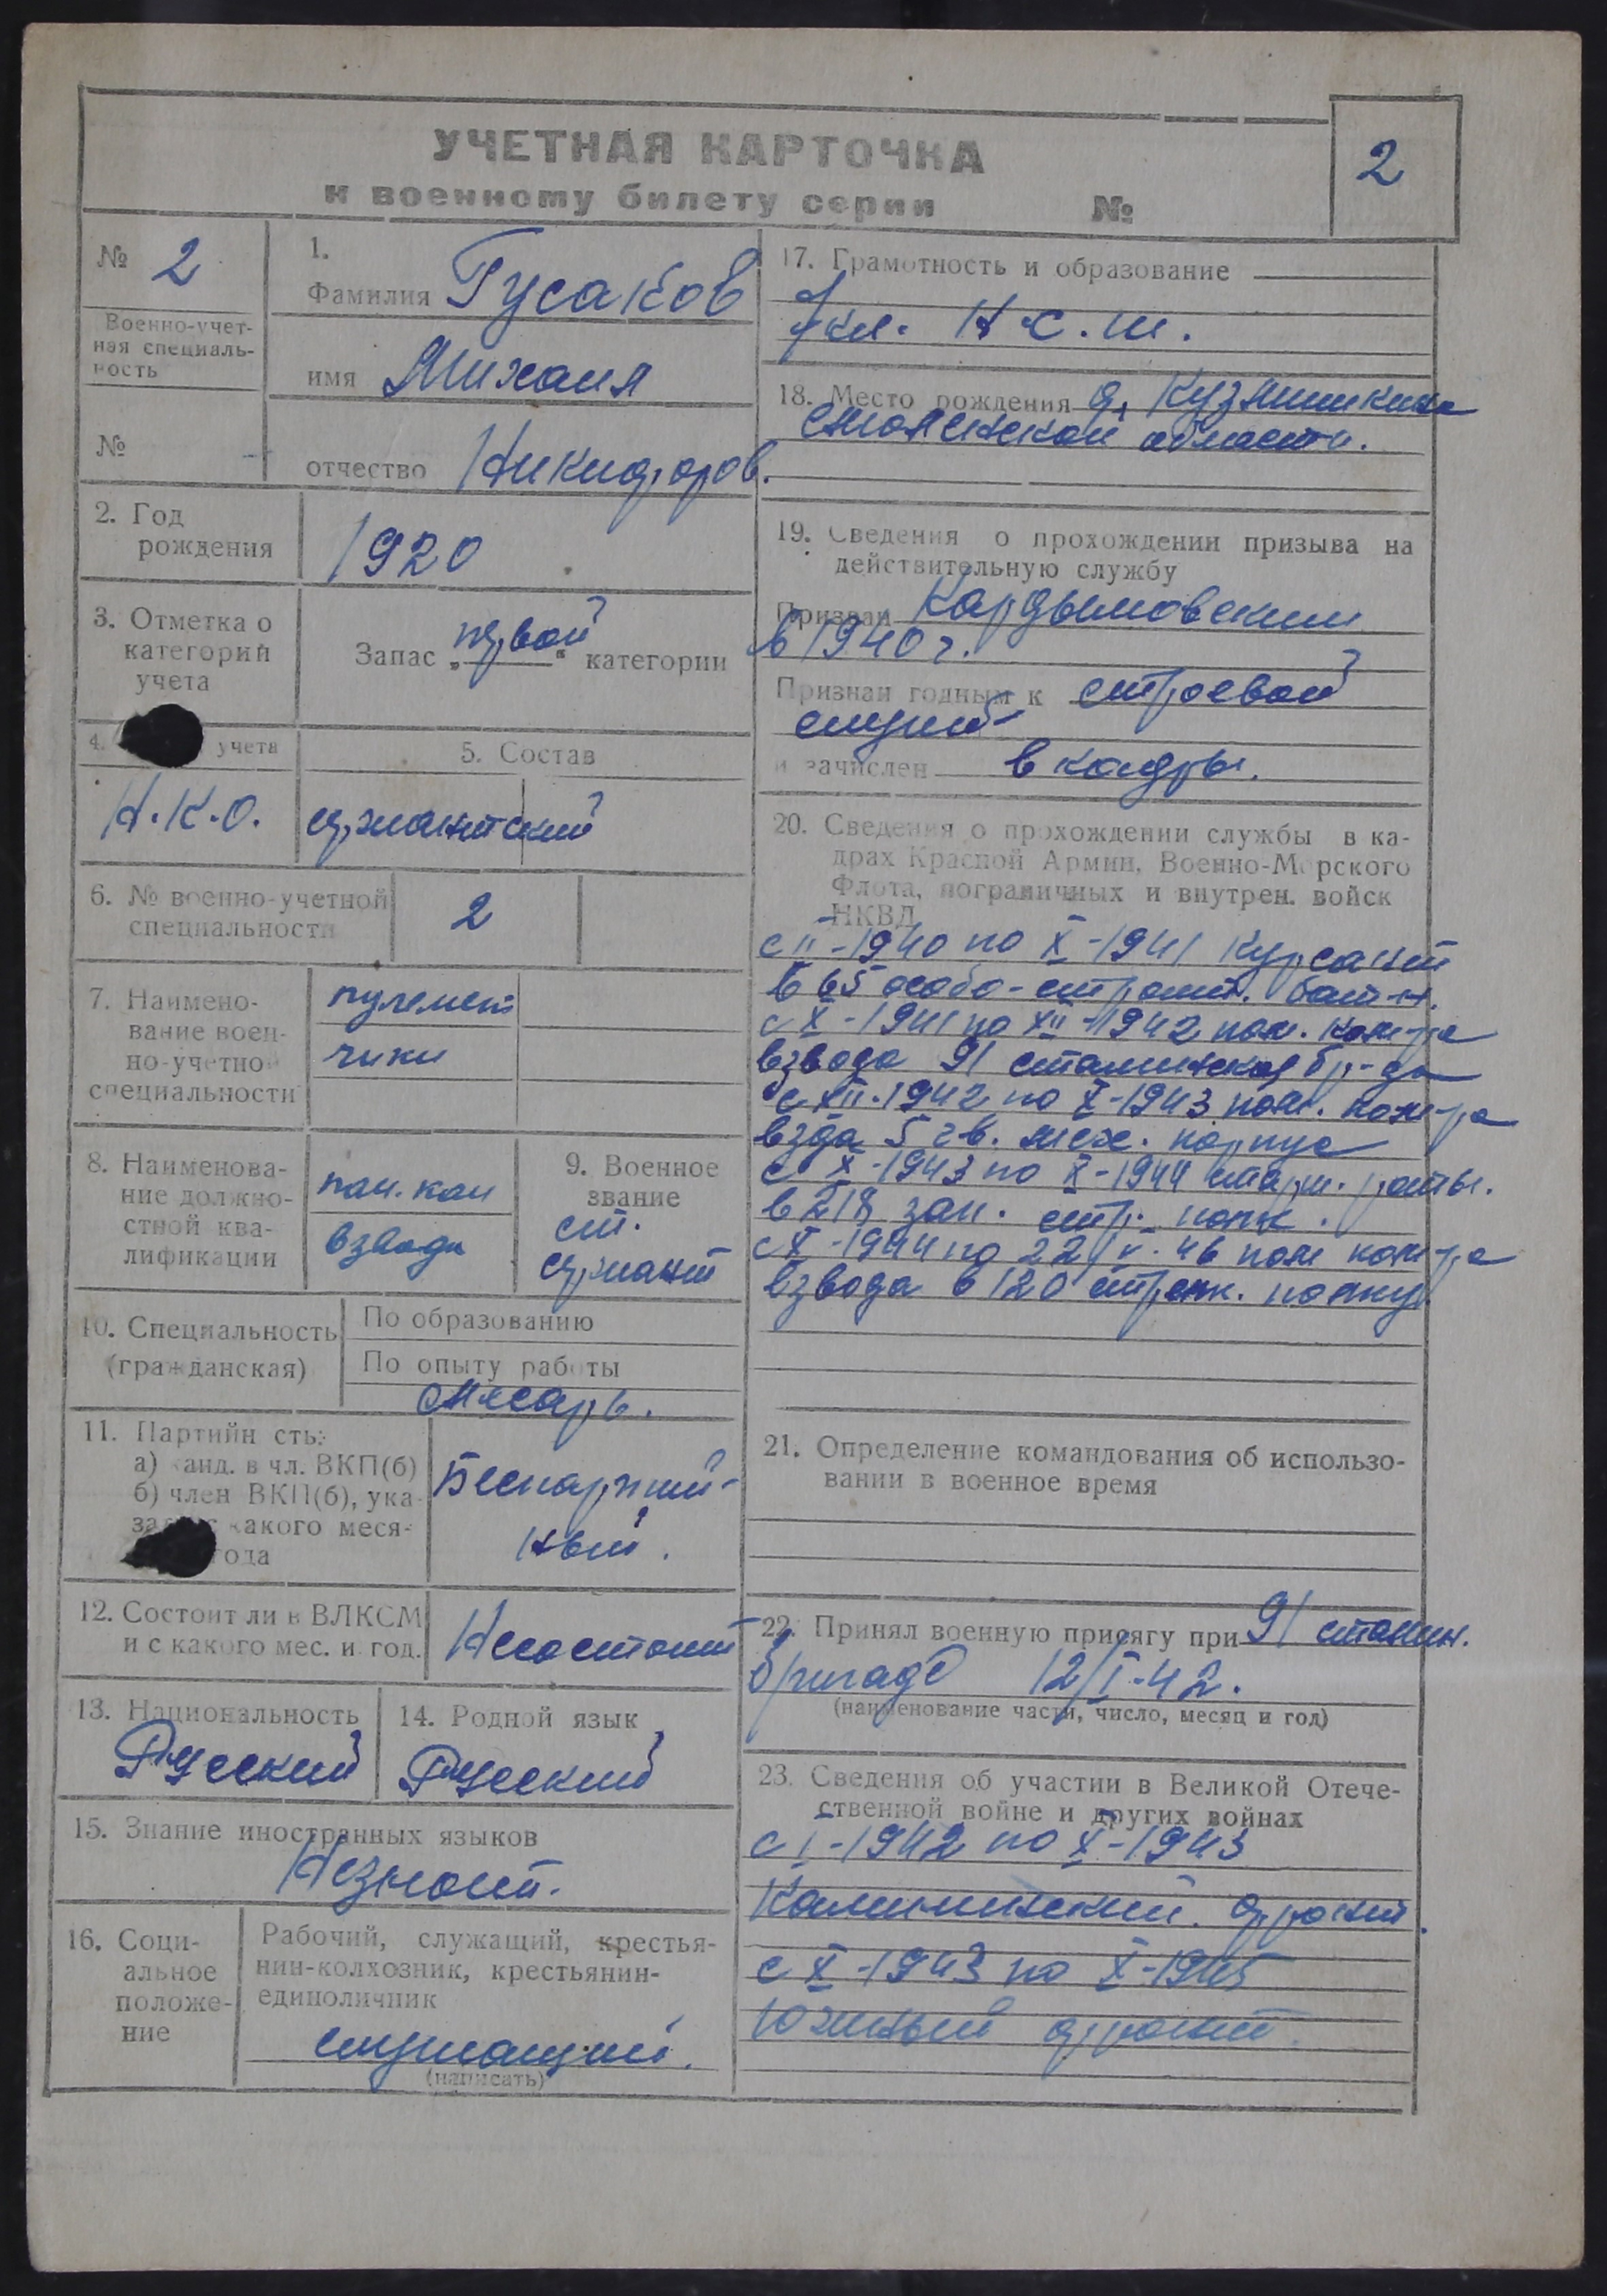 УЧЕТНАЯ КАРТОЧКА
к военному билету серии №
2
№ 2
Военно-учет-
ная специаль-
ность
№
1.
Фамилия Гусаков
имя Михаил
отчество Никифоров.
2. Год
рождения
1920
3. Отметка о
категорий
учета
Запас „первой“ категории
4. учета
Н.К.О.
5. Состав
сержантский
6. № военно-учетной
специальности
2
7. Наимено-
вание воен-
но-учетно
специальности
пулемет
чики
8. Наименова-
ние должно-
стной ква-
лификации
пом. ком
взвода
9. Военное
звание
ст.
сержант
10. Специальность
(гражданская)
По образованию
По опыту работы
слесарь.
11. Партийн сть:
а) канд. в чл. ВКП(б)
б) член ВКП(б), ука-
какого меся-
года
Беспартий-
ный.
12. Состоит ли в ВЛКСМ
и с какого мес. и год.
Несостоит
13. Национальность
Русский
14. Родной язык
Русский
15. Знание иностранных языков
Незнает.
16. Соци-
альное
положе-
ние
Рабочий, служащий, крестья-
нин-колхозник, крестьянин-
единоличник
служащий.
(написать)
17. Грамотность и образование
7кл. Н.С.Ш.
18. Место рождения д.
Смоленской области.
19. Сведения о прохождении призыва на
действительную службу
Призван Кардымовским
в 1940 г.
Признан годным к строевой
служб
и зачислен в кадры.
20. Сведения о прохождении службы в ка-
драх Красной Армии, Военно-Морского
Флота, пограничных и внутрен. войск
НКВД
с II-1940 по X-1941 курсант
в 65 особо-строит. бат-н.
с X-1941 по XII-1942 пом. ком-ра
взвода 91 сталинская бр-да
с XII-1942 по X-1943 пом. ком-ра
взда 5 гв. мех. корпуса
с X-1943 по X-1944 старш. роты.
в 218 зап. стр. полк.
с X-1944 по 22/V-46 пом ком-ра
взвода в 120 стрелк. полку.
21. Определение командования об использо-
вании в военное время
22. Принял военную присягу при 91 сталин.
бригаде 12/I-42.
(наименование части, число, месяц и год)
23. Сведения об участии в Великой Отече-
ственной войне и других войнах
с I-1942 по X-1943
Калининский. фронт.
с X-1943 по X-1945
Южный фронт.